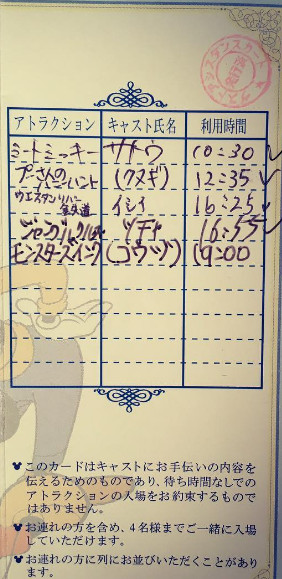 アトラクション キャスト氏名 利用時間
ミートミッキー サトウ 10:30
プーさんのハニーハント (クヌギ) 12:35
ウエスタンリバー鉄道 イシイ 16:25
ジャングルクルーズ ツチヤ 16:55
モンスターズインク (コウヅ) 19:00
このカードはキャストにお手伝いの内容を
伝えるためのものであり、待ち時間なしでの
アトラクションの入場をお約束するもので
はありません。
お連れの方を含め、4名様までご一緒に入場
していただけます。
お連れの方に列にお並びいただくことがあり
ます。